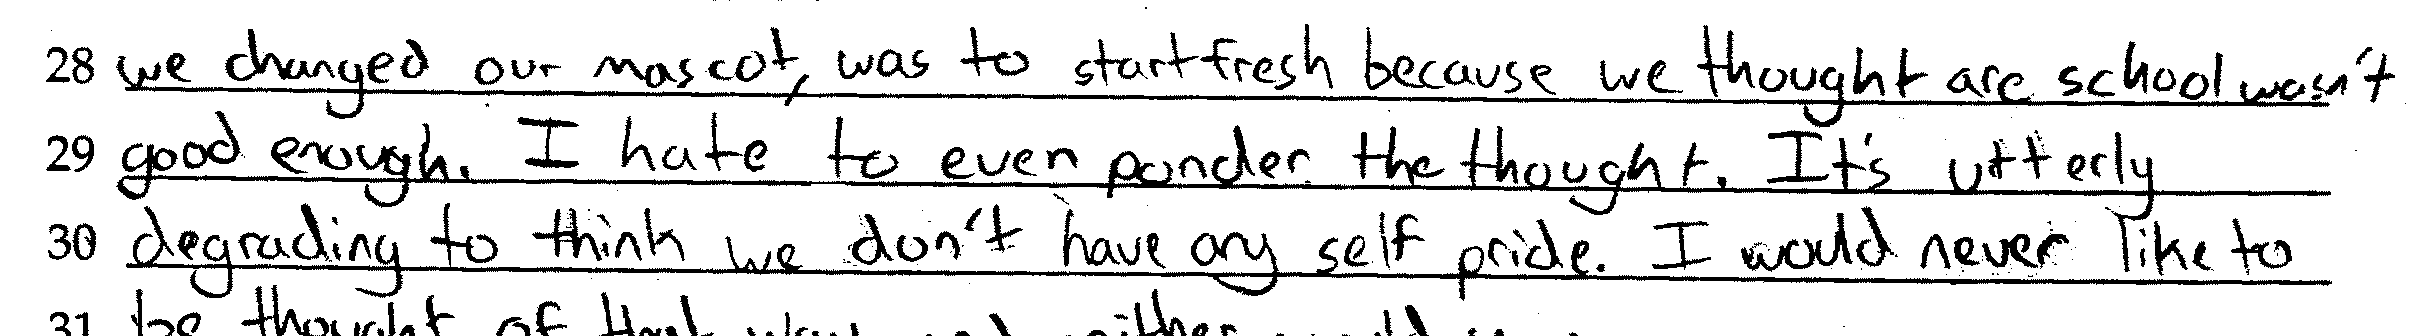 28 we changed our mascot, was to start fresh because we thought are school wasn't
29 good enough. I hate to even ponder the thought. It's utterly
30 degrading to think we don't have any self pride. I would never like to
31 be thought of that way and neither would